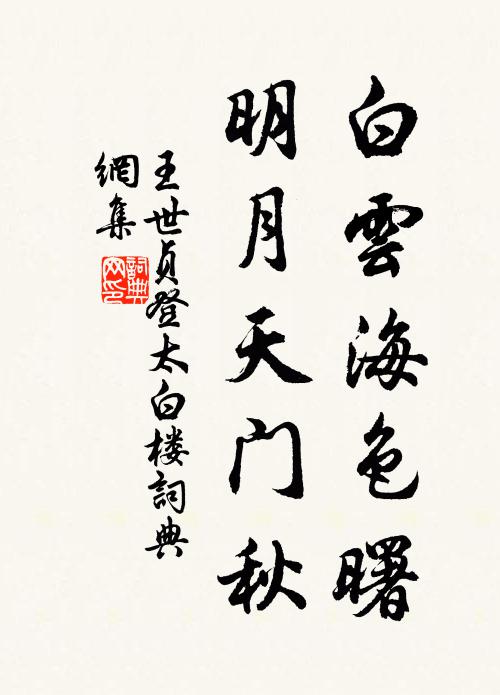 白雲海色曙
明月天门秋
王世贞登太白楼詞典
網集
詞典網印